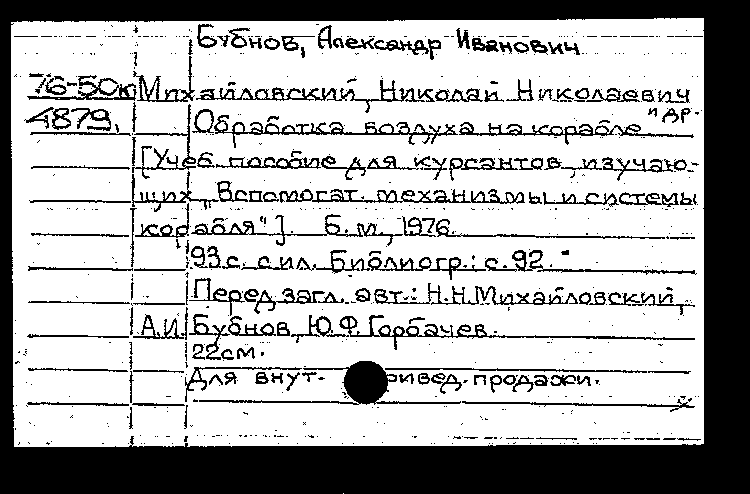 Бубнов, Александр Иванович
76-50к Михайловский, Николай Николаевич
и др.
4879. Обработка воздуха на корабле
[Учеб. пособие для курсантов, изучаю-
щих „Вспомогат. механизмы и системы
корабля"]. Б. м., 1976.
93 с. с ил. Библиогр.: с. 92.
Перед загл. авт.: Н.Н. Михайловский,
А.И. Бубнов, Ю.Ф. Горбачев.
22 см.
Для внут. продажи.